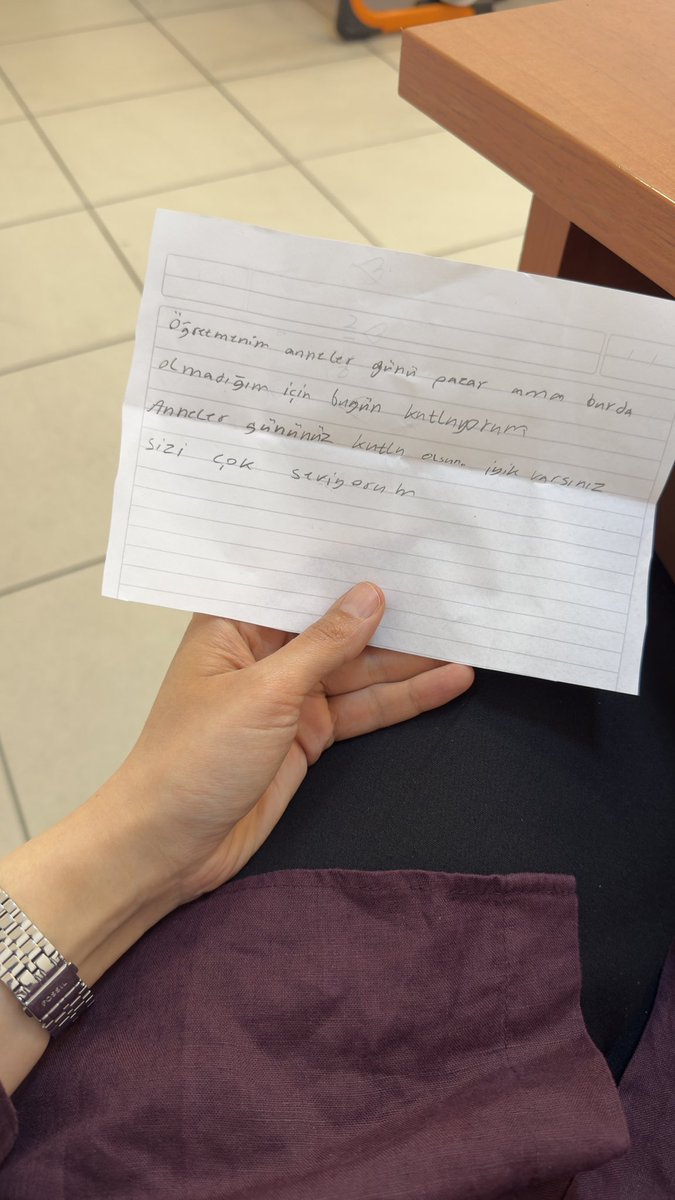 Öğretmenim anneler günü pazar ama burda
olmadığım için bugün kutluyorum
Anneler gününüz kutlu olsun. iyik varsınız
sizi çok seviyorum
FOSSIL